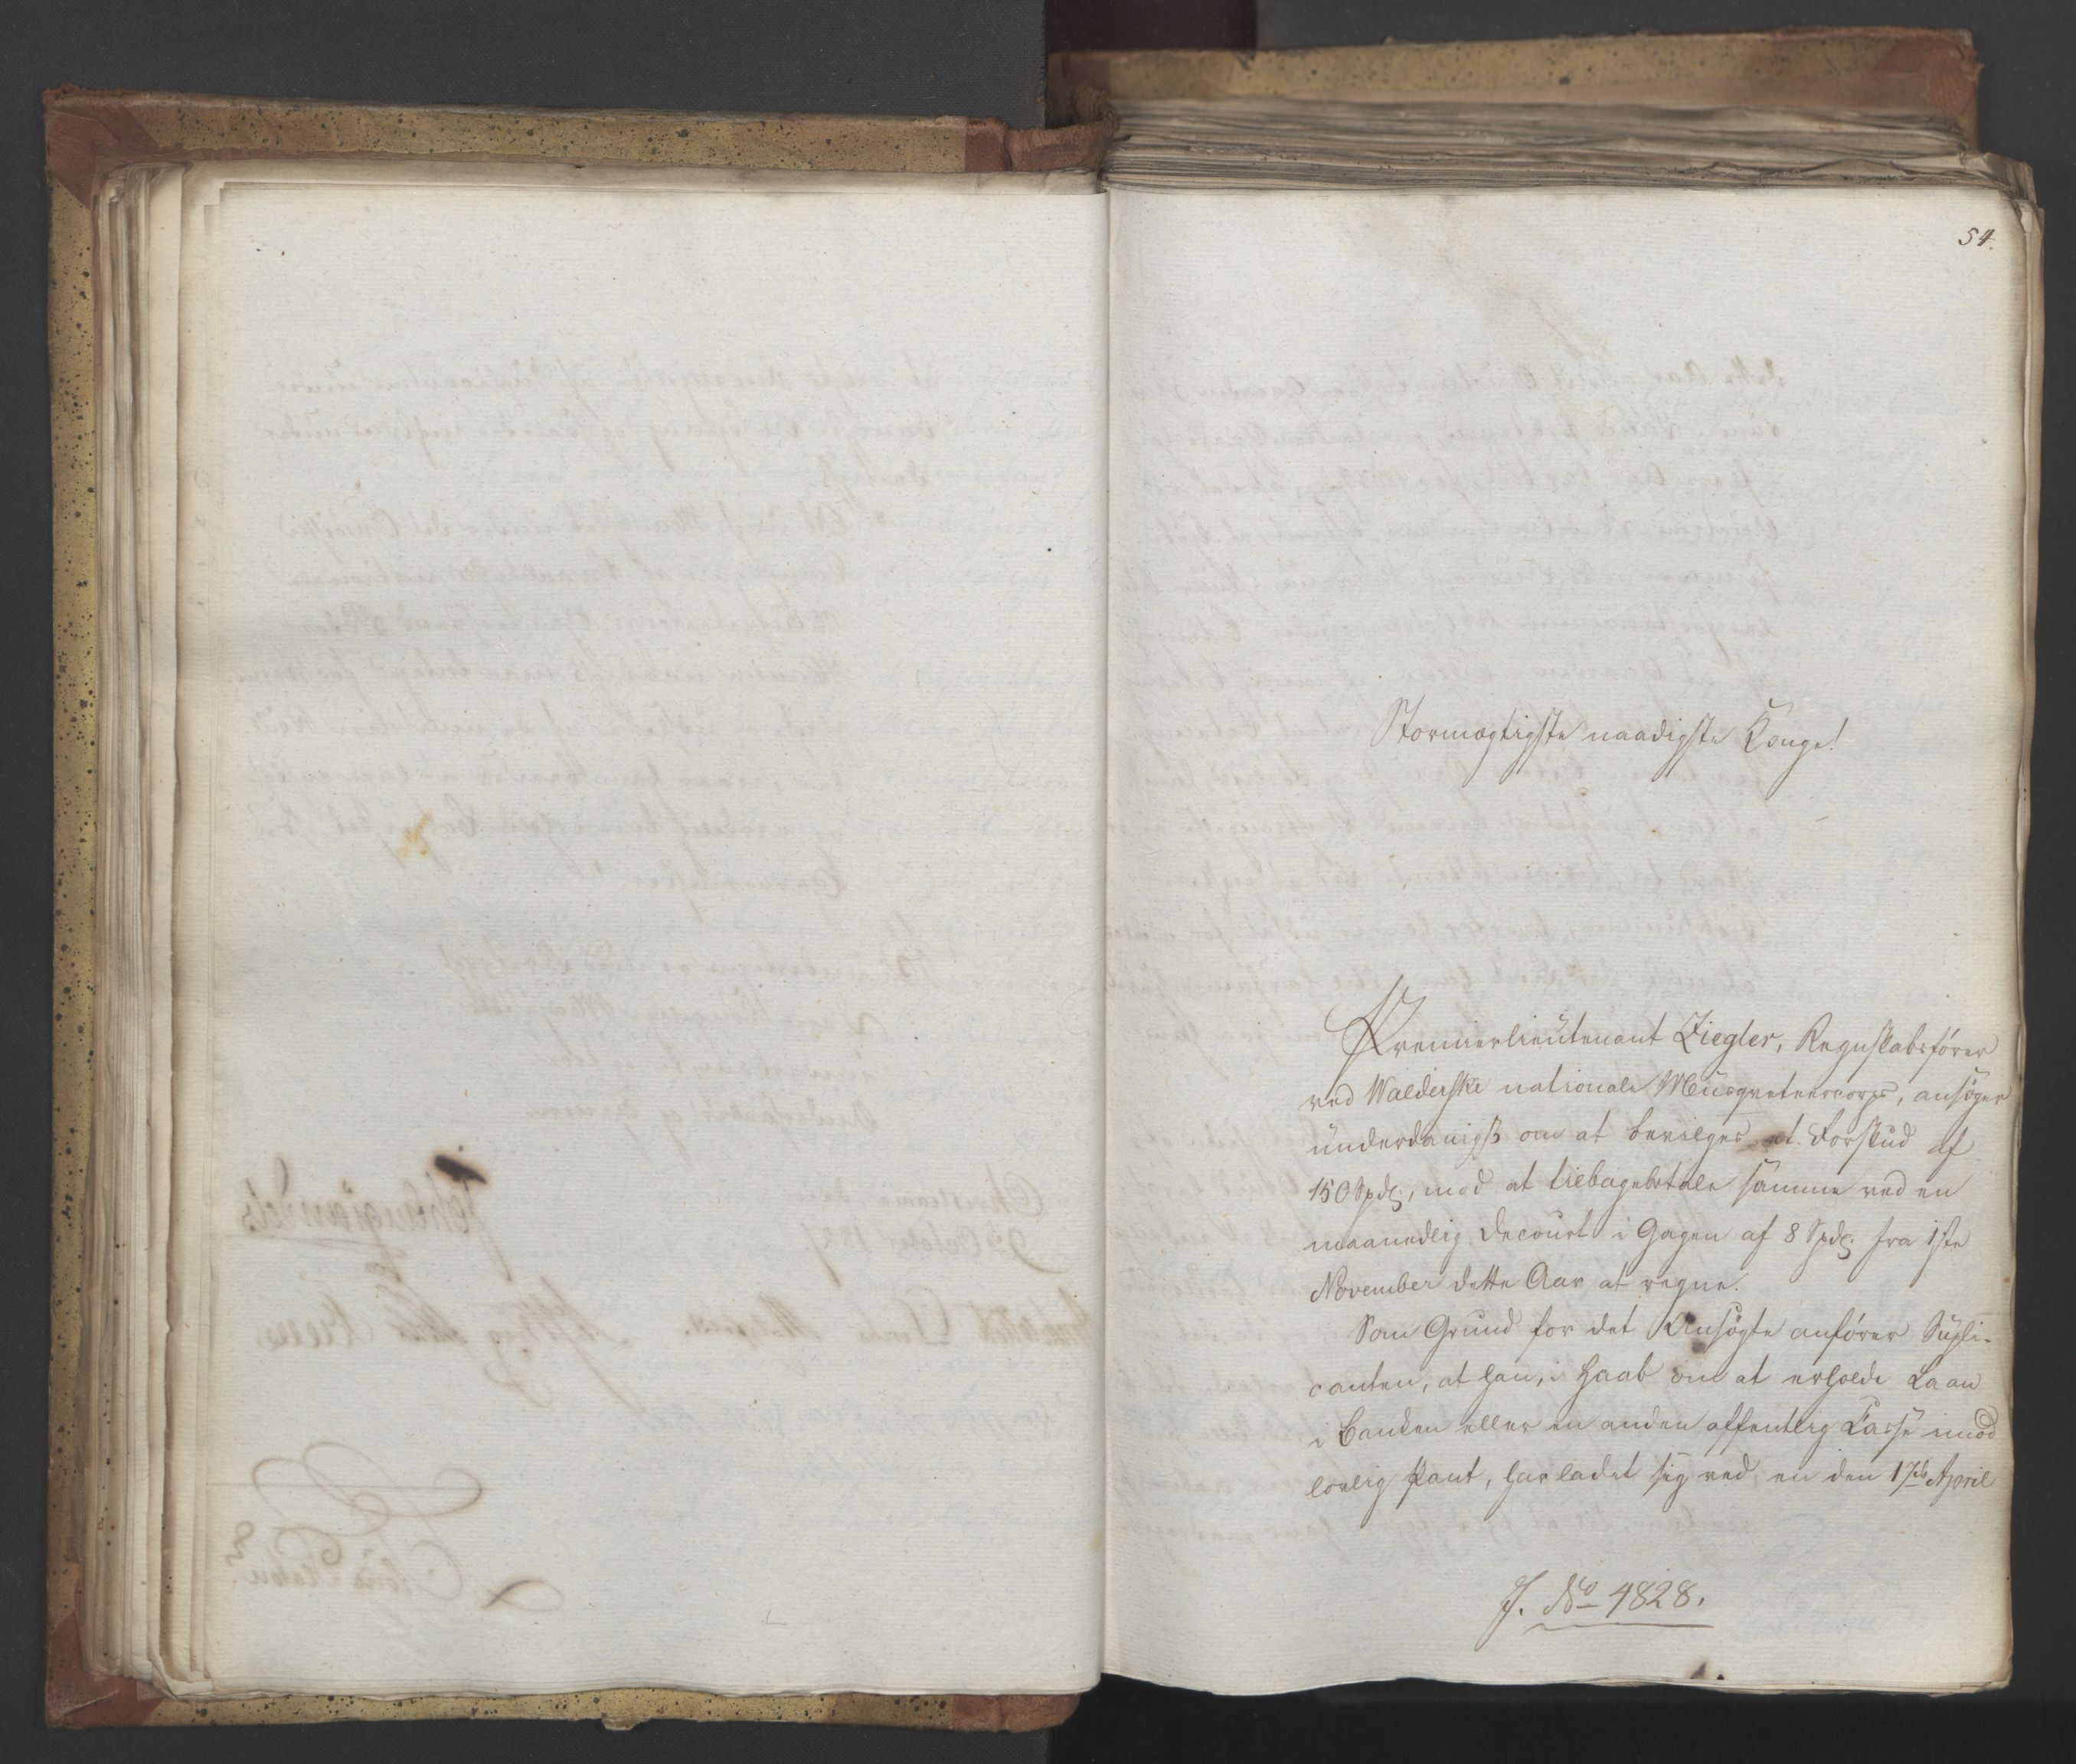 54.
Stormægtigste naadigste Konge!
Premierlieutenant Ziegler, Regnskabsfører
ved Walderske nationale Musqveteercorps, ansøger
underdanigst om at bevilges et Forskud af
150 Spdlr, mod at tilbagebetale samme ved en
maanedlig Decourt i Gagen af 8 Spdlr fra 1ste
November dette Aar at regne.
Som Grund for det Ansøgte anfører Supli-
canten, at han, i Haab om at erholde Laan
i Banken eller en anden offentlig Casse imod
lovlig Pant, har ladet sig ved en den 17de April
J. No 4828.